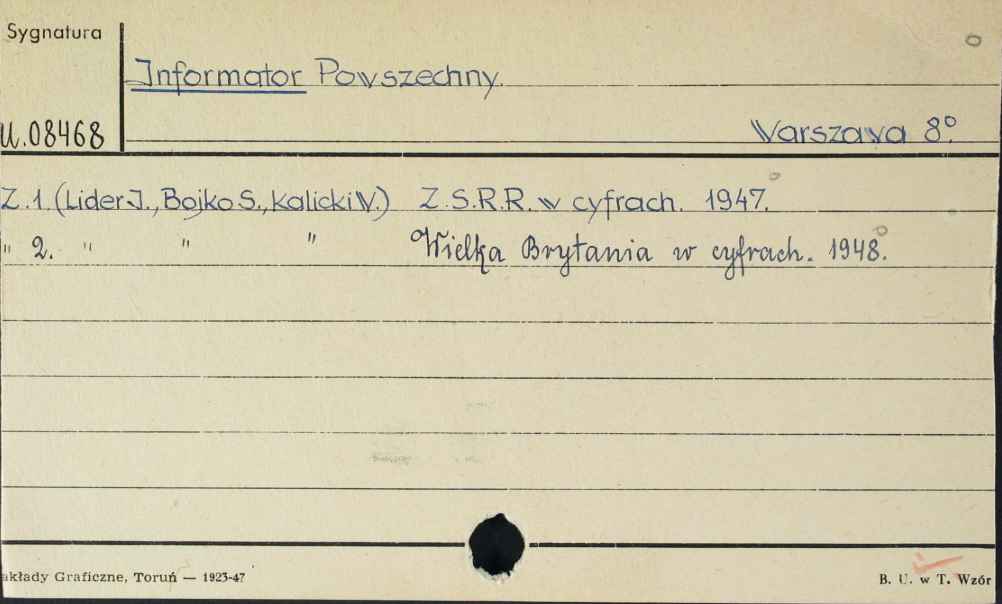 Sygnatura
Informator Powszechny.
U.08468
Warszawa 8°.
Z.1 (Lider J., Bojko S., Kalicki W.) Z.S.R.R. w cyfrach. 1947.
" 2. " " " Wielka Brytania w cyfrach. 1948.
akłady Graficzne, Toruń — 1923-47
B. U. w T. Wzór